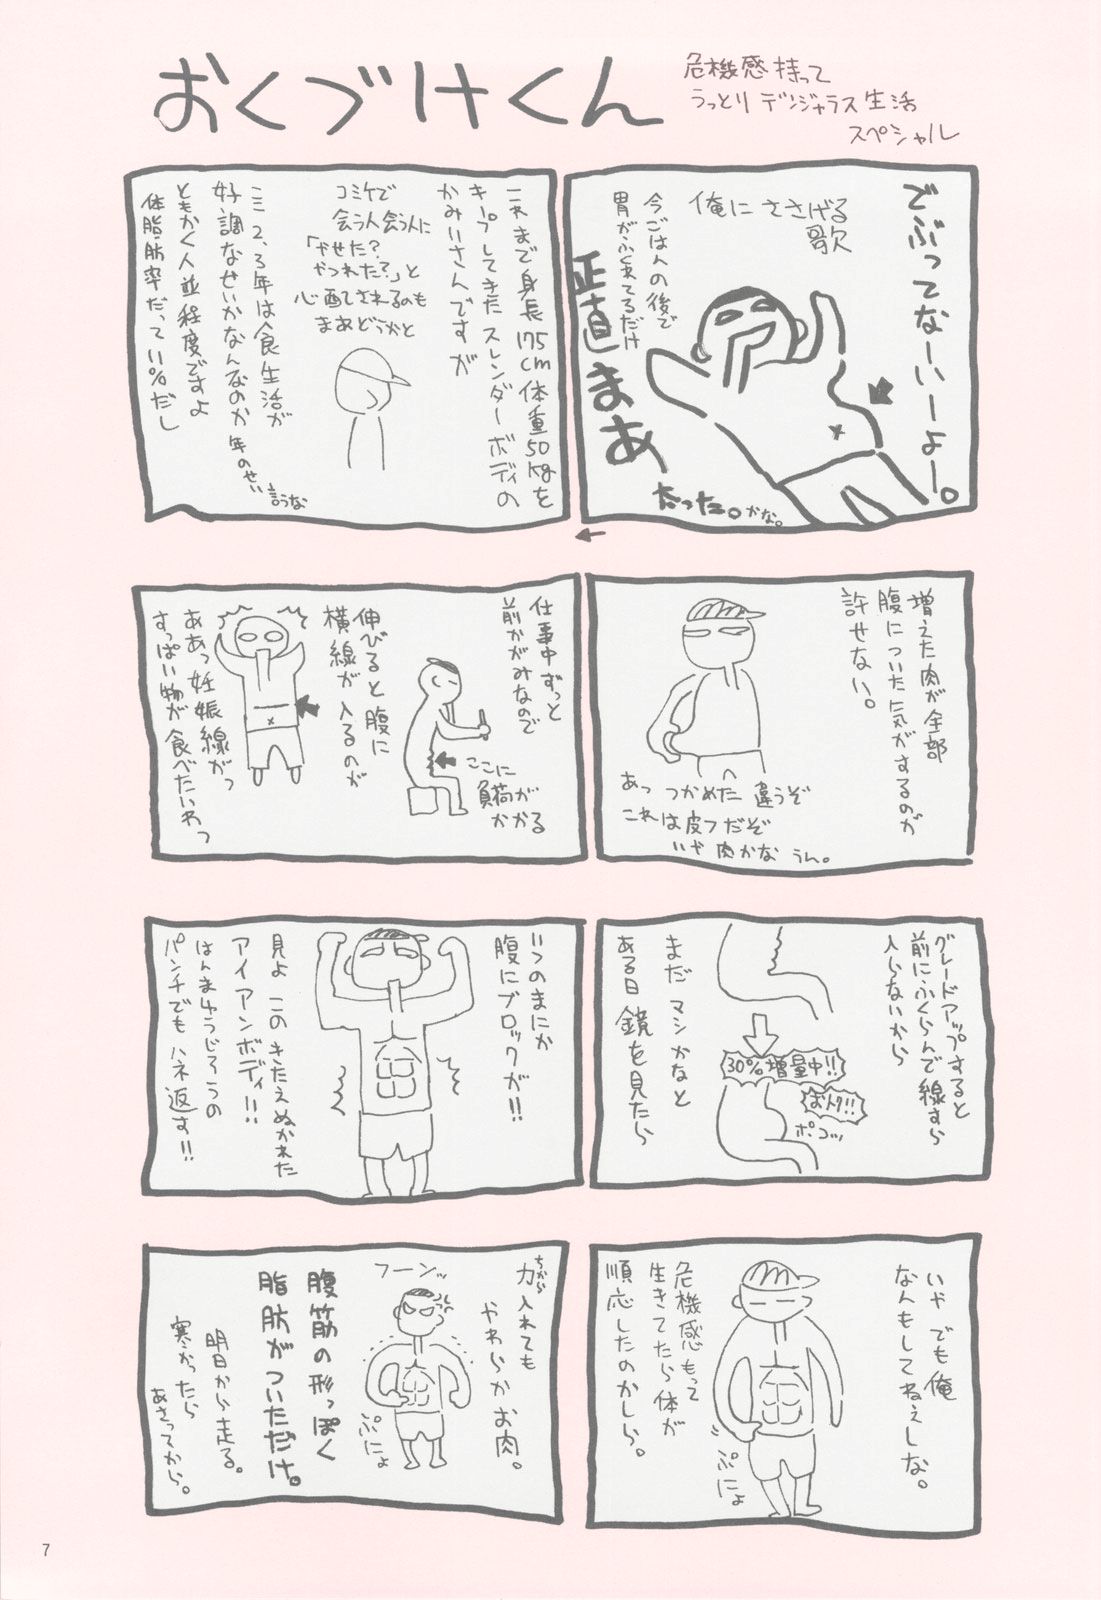 おくづけくん
危機感持って
うっとりデンジャラス生活
スペシャル
でぶってなーいーよー。
俺にささげる
歌
今ごはんの後で
胃がふくれてるだけ
正直まあ
太った。かな。
これまで身長175cm体重50kgを
キープしてきたスレンダーボディの
かみいさんですが
コミケで
会う人会う人に
「やせた?
やつれた?」と
心配されるのも
まあどうかと
ここ2、3年は食生活が
好調なせいかなんなのか年のせい
言うな
ともかく人並程度ですよ
体脂肪率だって11%だし
増えた肉が全部
腹についた気がするのが
許せない。
あっつかめた違うぞ
これは皮フだぞ
いや肉かなうん。
仕事中ずっと
前かがみなので
ここに
負荷が
かかる
伸びると腹に
横線が入るのが
ああっ妊娠線がっ
すっぱい物が食べたいわっ
グレードアップすると
前にふくらんで線すら
入らないから
30%増量中!!
おトク!!
ポコッ
まだマシかなと
ある日鏡を見たら
いつのまにか
腹にブロックが!!
見よこのきたえぬかれた
アイアンボディ!!
はんまゆうじろうの
パンチでもハネ返す!!
いやでも俺
なんもしてねえしな。
ぷにょ
危機感もって
生きてたら体が
順応したのかしら。
ちから
力入れても
やわらかお肉。
フーンッ
ぷにょ
腹筋の形っぽく
脂肪がついただけ。
明日から走る。
寒かったら
あさってから。
7